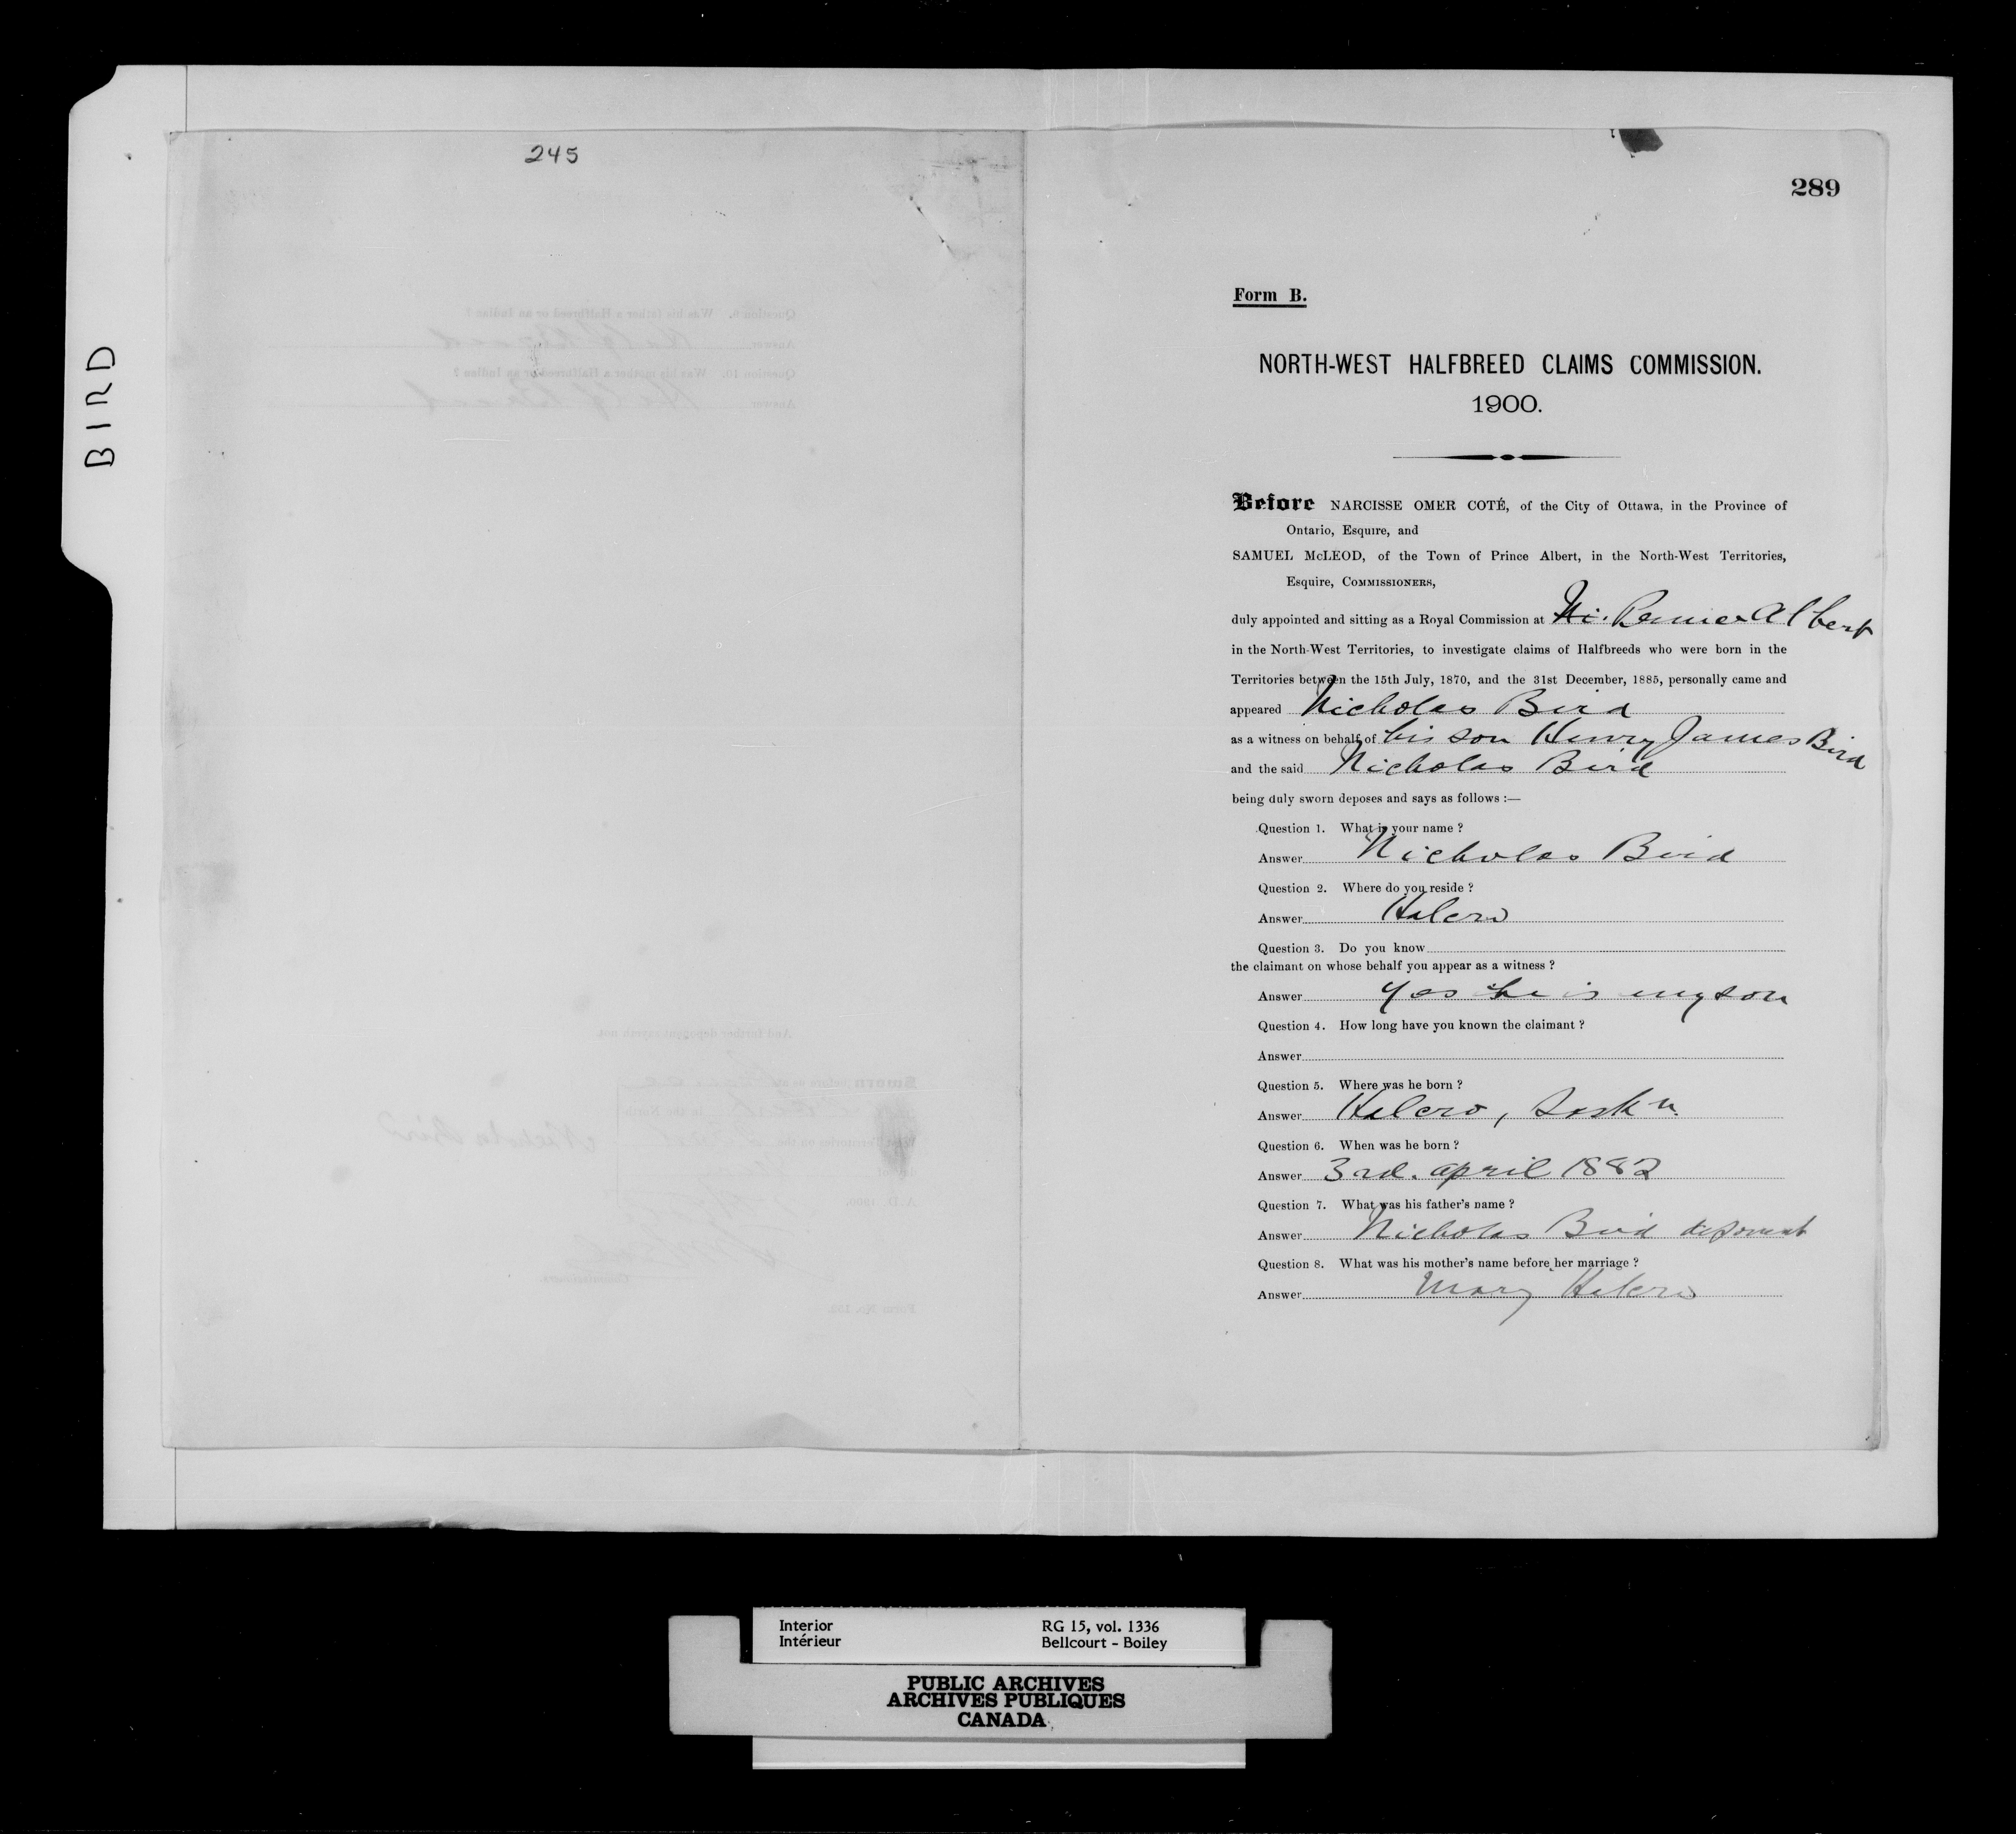 BIRD
245
289
Form B.
NORTH-WEST HALFBREED CLAIMS COMMISSION.
1900.
Before NARCISSE OMER COTÉ, of the City of Ottawa, in the Province of
Ontario, Esquire, and
SAMUEL McLEOD, of the Town of Prince Albert, in the North-West Territories,
Esquire, COMMISSIONERS,
duly appointed and sitting as a Royal Commission at Albert
in the North-West Territories, to investigate claims of Halfbreeds who were born in the
Territories between the 15th July, 1870, and the 31st December, 1885, personally came and
appeared Nicholas Bird
as a witness on behalf of his son Henry James Bird
and the said Nicholas Bird
being duly sworn deposes and says as follows :—
Question 1. What is your name ?
Answer Nicholas Bird
Question 2. Where do you reside ?
Answer Halcro
Question 3. Do you know
the claimant on whose behalf you appear as a witness ?
Answer Yes he is my son
Question 4. How long have you known the claimant ?
Answer
Question 5. Where was he born ?
Answer Halcro, Sask n.
Question 6. When was he born ?
Answer 3rd. april 1882
Question 7. What was his father's name ?
Answer Nicholas Bird deponent
Question 8. What was his mother's name before her marriage ?
Answer Mary Halcro
Question 9. Was his father a Halfbreed or an Indian ?
Answer Half Breed
Question 10. Was his mother a Halfbreed or an Indian ?
Answer Half Breed
And further deponent sayeth not.
Sworn before me at
in the North-
West Territories on the
A.D. 1900.
Nicholas Bird
Form No. 152.
Interior RG 15, vol. 1336
Intérieur Bellcourt - Boiley
PUBLIC ARCHIVES
ARCHIVES PUBLIQUES
CANADA